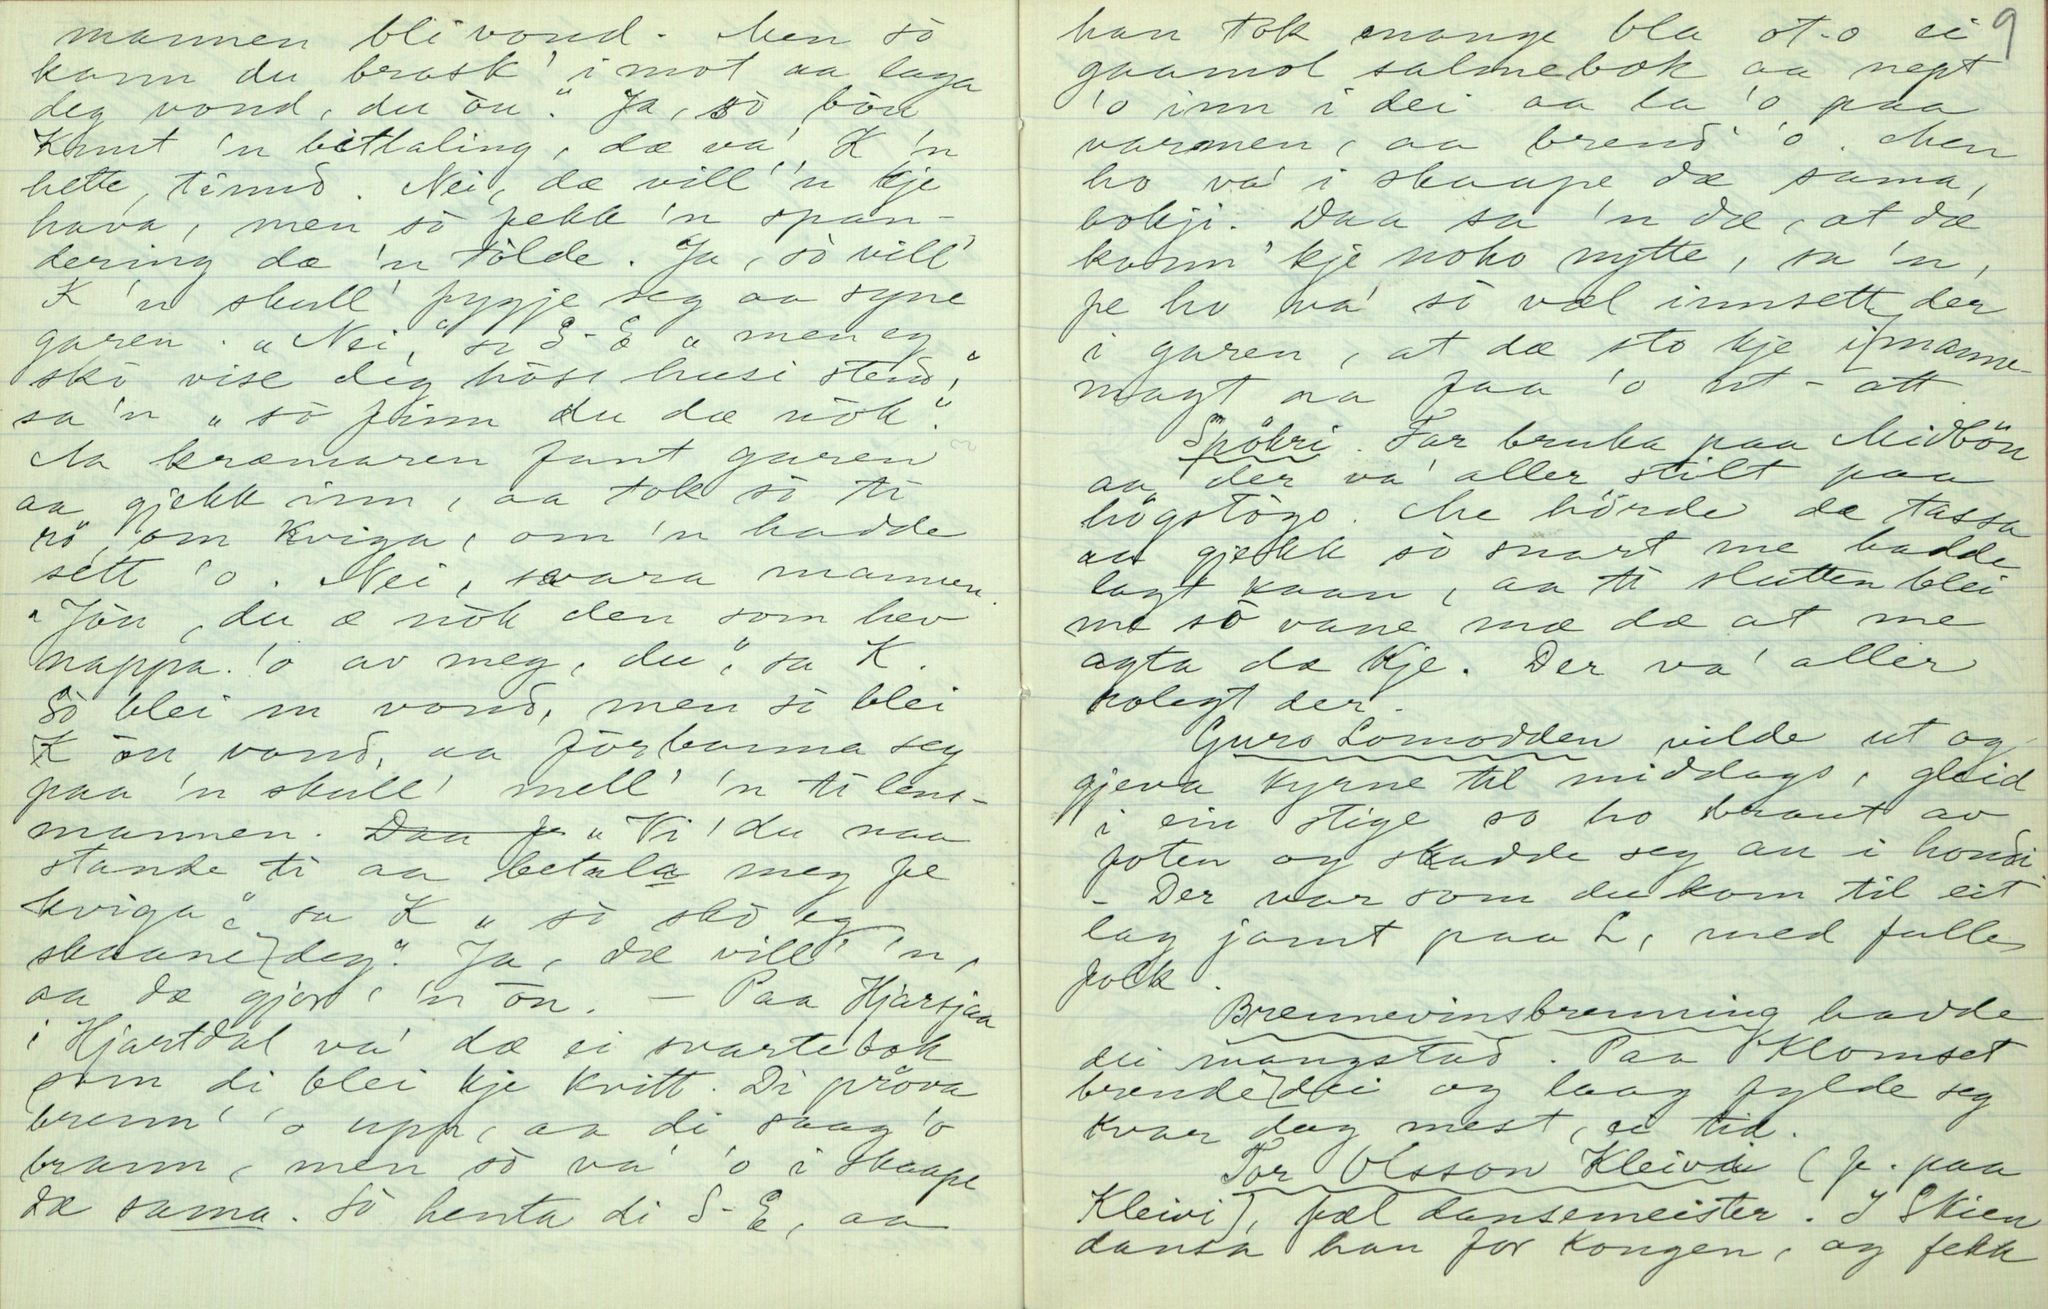 mannen bli vond. Men sò
kann du brask' imot aa laga
deg vond, du òu." Ja, sò bòu
Knut 'n bittaling, dæ va' K 'n
hette, timd. Nei, dæ vill' 'n kje
hava, men sò fekk 'n span-
dering dæ 'n tòlde. Ja, sò vill'
K 'n skull' fygje seg aa syne
garen. "Nei," sa S-E "men eg
skò vise deg hòss husi stend,"
sa 'n "sò finn du dæ nòk."
Aa kræmaren fant garen
aa gjekk inn, aa tok sò ti
rö om kviga, om 'n hadde
sett 'o. Nei, svara mannen.
"Jòu, du æ nòk den som hev
nappa 'o av meg, du", sa K.
Sò blei m vond, men sò blei
K òu vond, aa förbanna seg
paa 'n skull' mell' 'n ti lens-
mannen. Daa fe "Vi' du naa
stande ti aa betala meg fe
kviga", sa K "sò skò eg
skaane deg". Ja, dæ vill' 'n,
aa dæ gjor' 'n òu. — Paa Hjarsjaa
i Hjartdal va' dæ ei svartebok
som di blei kje kvitt. Di pröva
brenn' 'o upp, aa di saag 'o
brann, men sò va' 'o i skaape
dæ sama. Sò henta di S-E, aa
9
han tok mange bla òt-o ei
gaamol salmebok aa nept
'o inn i dei aa la 'o paa
varmen, aa brend' 'o. Men
ho va' i skaape dæ sama,
bokji. Daa sa 'n dæ, at dæ
kunn' kje noko nytte, sa 'n,
fe ho va' sò væl innsett der
i garen, at dæ sto kje i manne-
magt aa faa 'o ut-ătt
Spökri. Far bruka paa Midbön
aa der va' aller stilt paa
högstògo. Me hörde dæ tassa
aa gjekk sò snart me hadde
lagt kaan, aa ti slutten blei
me sò vane mæ dæ at me
agta dæ kje. Der va' aller
kolegt der.
Guro Lomodden vilde ut og
gjeva kyrne til middags, gleid
i ein stige so ho braut av
foten og skadde seg au i hondi.
- Der var som du kom til eit
lag jamt paa L, med fulle
folk.
Brennevinsbrenning havde
dei mangstad. Paa Klomset
brende dei og laag fylde seg
kvar dag mest, ei tid.
Tor Olsson Kleivi (f. paa
Kleivi), fæl dansemeister. I Skien
dansa han for Kongen, og fekk